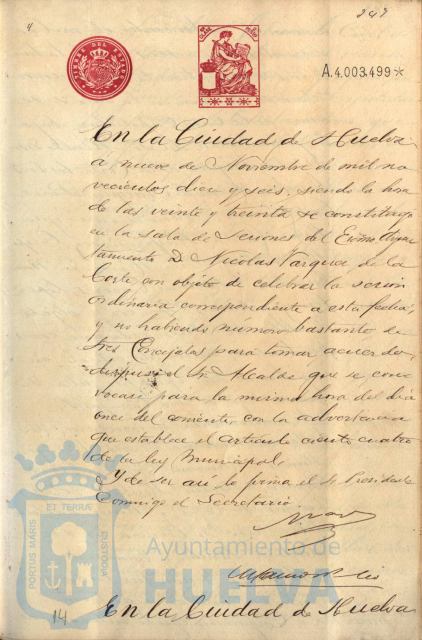 4
247
TIMBRE DEL ESTADO
A.4.003.499*
En la Ciudad de Huelva
a nueve de Noviembre de mil no
vecientos diez y seis, siendo la hora
de las veinte y treinta se constituyó
en la sala de Sesiones del Excmo. Ayun
tamiento D. Nicolas Vazquez de la
Corte con objeto de celebrar la sesion
ordinaria correspondiente a esta fecha,
y no habiendo numero bastante de
tres Concejales para tomar acuerdo,
dispuso el Sr. Alcalde que se con
vocase para la misma hora del dia
once del corriente, con la advertencia
que establece el articulo ciento cuatro
de la ley Municipal,
Y de ser asi lo firma el Sr. Presidente
Conmigo el Secretario
PORTUS MARIS ET TERRAE CUSTODIA
Ayuntamiento de
HUELVA
14
En la Ciudad de Huelva